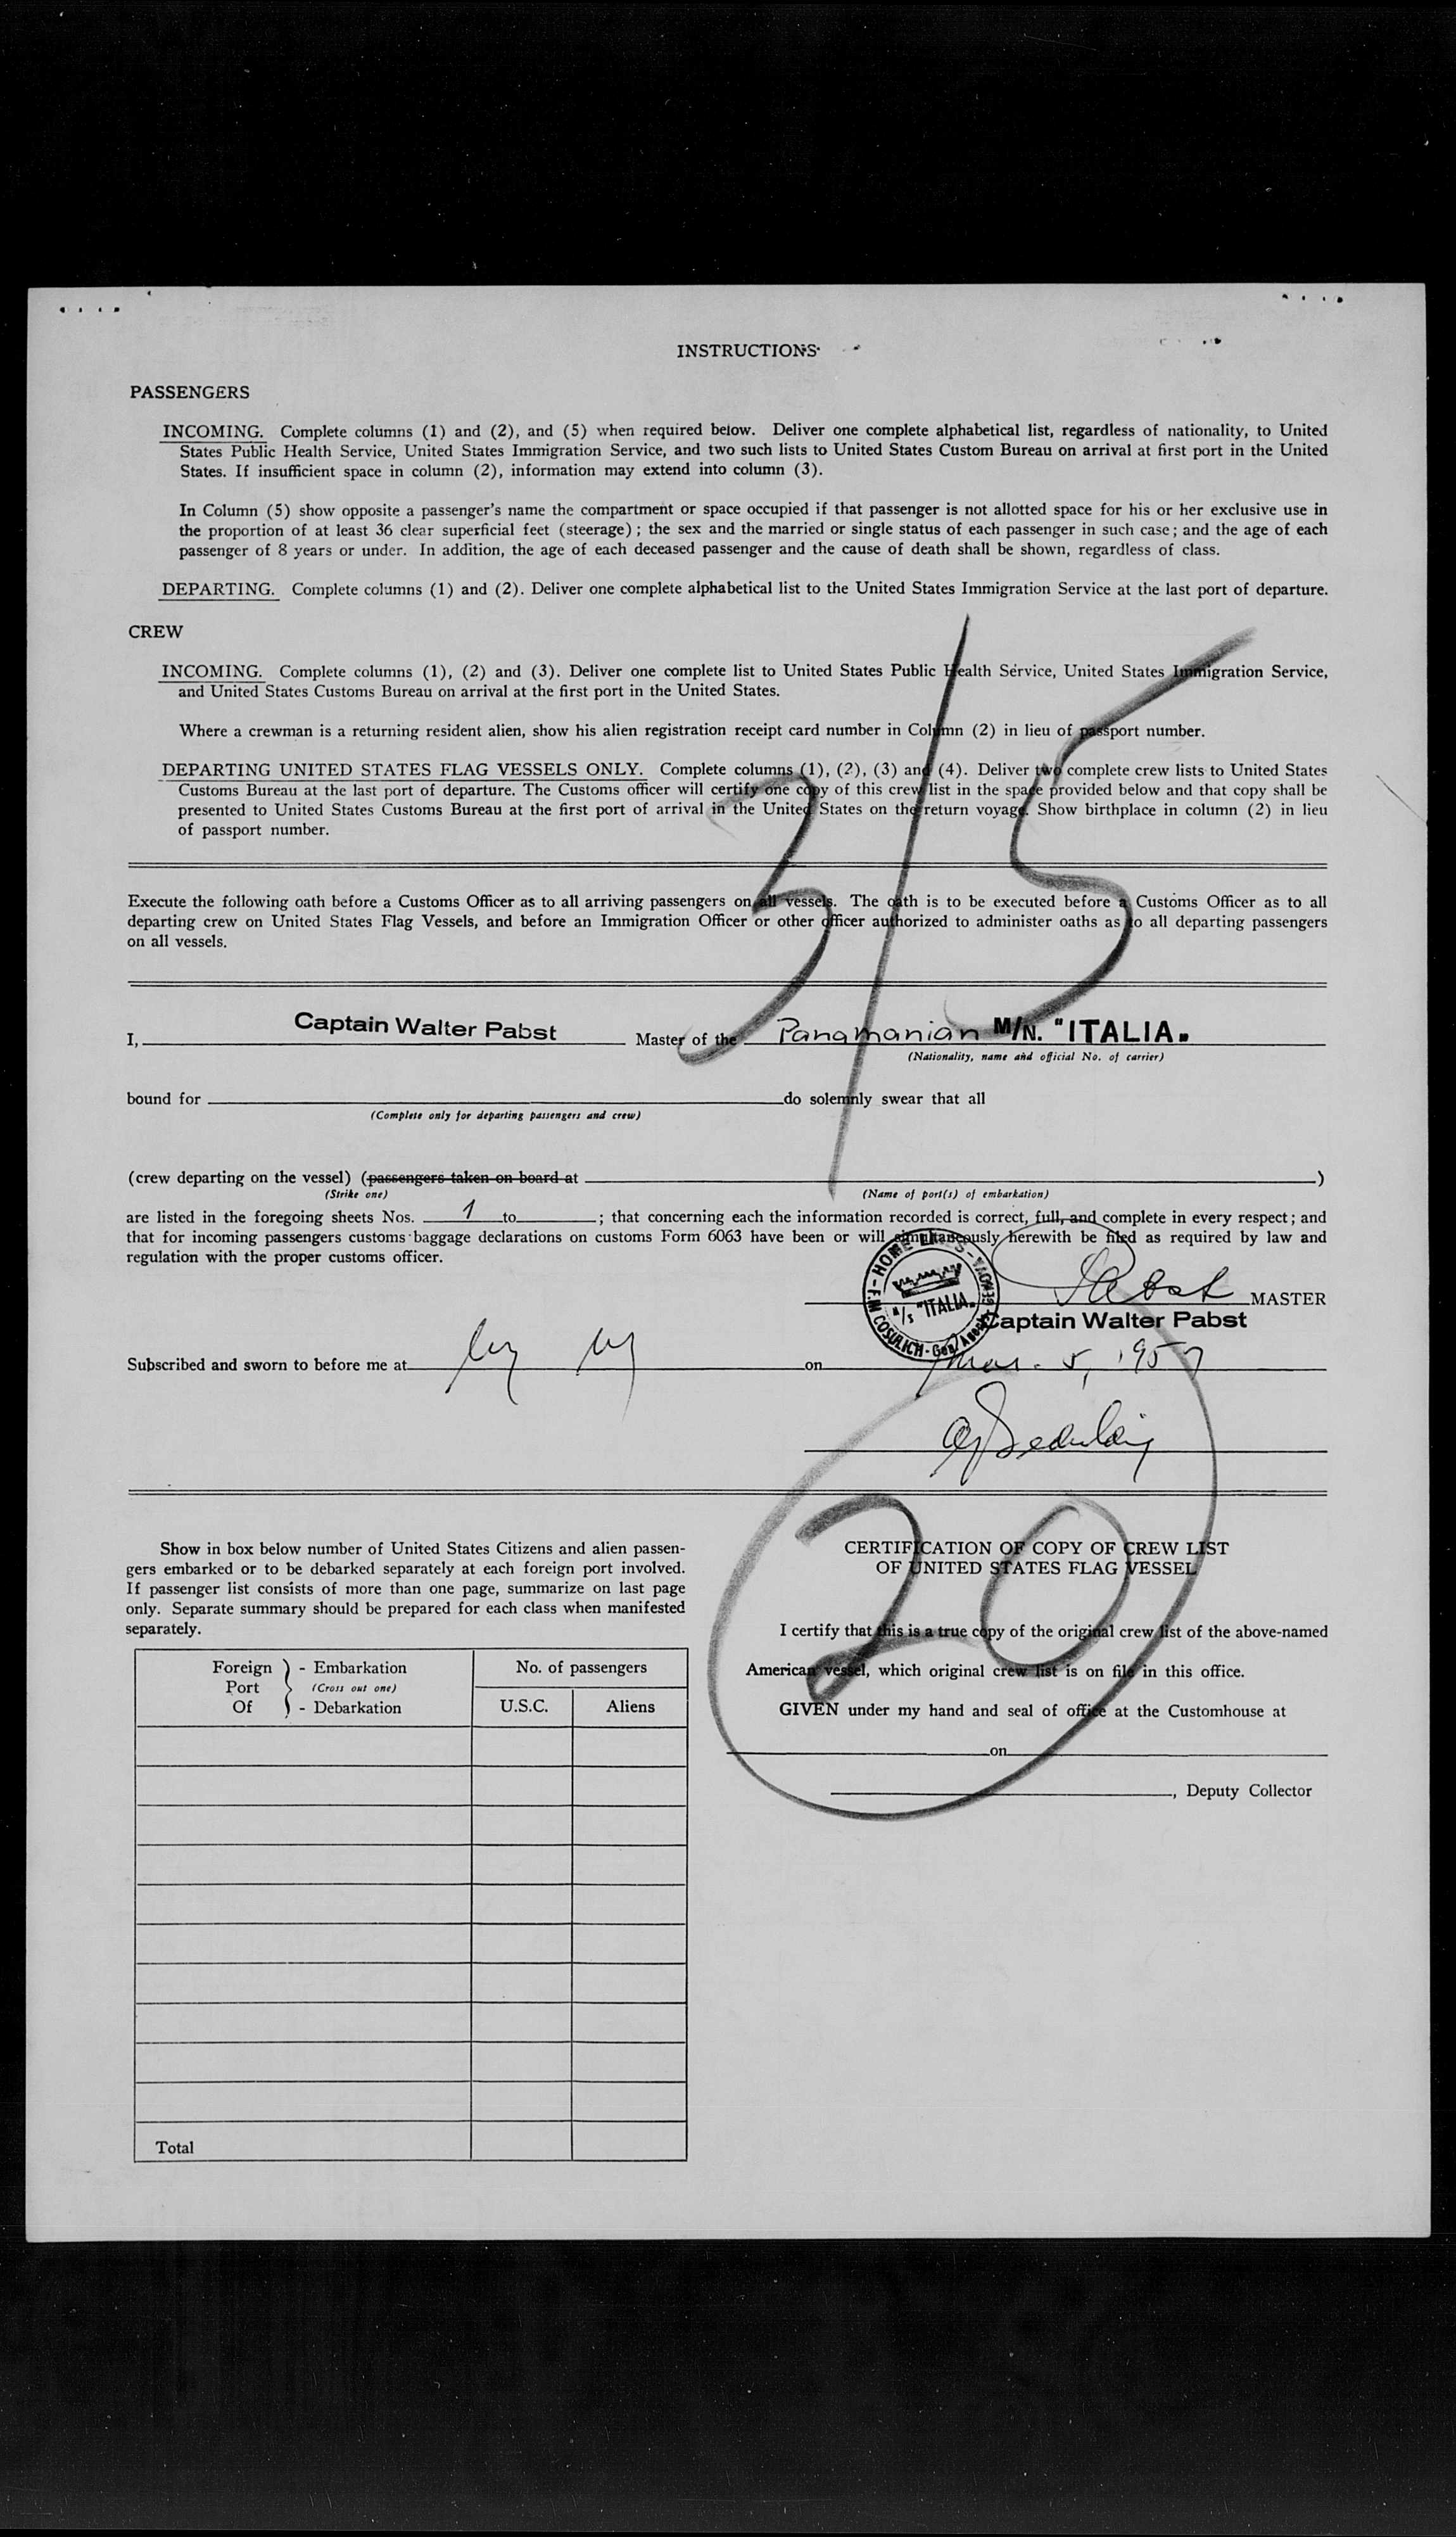 INSTRUCTIONS
PASSENGERS
INCOMING. Complete columns (1) and (2), and (5) when required below. Deliver one complete alphabetical list, regardless of nationality, to United
States Public Health Service, United States Immigration Service, and two such lists to United States Custom Bureau on arrival at first port in the United
States. If insufficient space in column (2), information may extend into column (3).
In Column (5) show opposite a passenger's name the compartment or space occupied if that passenger is not allotted space for his or her exclusive use in
the proportion of at least 36 clear superficial feet (steerage); the sex and the married or single status of each passenger in such case; and the age of each
passenger of 8 years or under. In addition, the age of each deceased passenger and the cause of death shall be shown, regardless of class.
DEPARTING. Complete columns (1) and (2). Deliver one complete alphabetical list to the United States Immigration Service at the last port of departure.
CREW
INCOMING. Complete columns (1), (2) and (3). Deliver one complete list to United States Public Health Service, United States Immigration Service,
and United States Customs Bureau on arrival at the first port in the United States.
Where a crewman is a returning resident alien, show his alien registration receipt card number in Column (2) in lieu of passport number.
DEPARTING UNITED STATES FLAG VESSELS ONLY. Complete columns (1), (2), (3) and (4). Deliver two complete crew lists to United States
Customs Bureau at the last port of departure. The Customs officer will certify one copy of this crew list in the space provided below and that copy shall be
presented to United States Customs Bureau at the first port of arrival in the United States on the return voyage. Show birthplace in column (2) in lieu
of passport number.
3/5
Execute the following oath before a Customs Officer as to all arriving passengers on all vessels. The oath is to be executed before a Customs Officer as to all
departing crew on United States Flag Vessels, and before an Immigration Officer or other officer authorized to administer oaths as to all departing passengers
on all vessels.
I, Captain Walter Pabst Master of the Panamanian M/N. "ITALIA"
(Nationality, name and official No. of carrier)
bound for do solemnly swear that all
(Complete only for departing passengers and crew)
(crew departing on the vessel) (passengers taken on board at )
(Strike one) (Name of port(s) of embarkation)
are listed in the foregoing sheets Nos. 1 to ; that concerning each the information recorded is correct, full, and complete in every respect; and
that for incoming passengers customs baggage declarations on customs Form 6063 have been or will simultaneously herewith be filed as required by law and
regulation with the proper customs officer.
HOME LINES - GENOVA - F. M COSULICH - Gen. Agents
M/s "ITALIA"
Pabst MASTER
Captain Walter Pabst
Subscribed and sworn to before me at ny ny on Mar. 5, 1957
20
Show in box below number of United States Citizens and alien passen-
gers embarked or to be debarked separately at each foreign port involved.
If passenger list consists of more than one page, summarize on last page
only. Separate summary should be prepared for each class when manifested
separately.
Foreign Port Of - Embarkation (Cross out one) - Debarkation
No. of passengers
U.S.C. Aliens
Total
CERTIFICATION OF COPY OF CREW LIST
OF UNITED STATES FLAG VESSEL
I certify that this is a true copy of the original crew list of the above-named
American vessel, which original crew list is on file in this office.
GIVEN under my hand and seal of office at the Customhouse at
on
, Deputy Collector